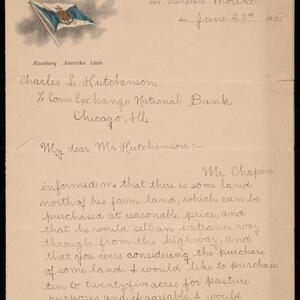 des Dampfers Moltke
den June 23rd 1905
Hamburg Amerika Linie.
Charles L. Hutchenson,
℅ Corn Exchange National Bank
Chicago, Ill.
My dear Mr Hutchenson:-
Mr. Chapin
informed me that there is some land
north of his farm land, which can be
purchased at reasonable price, and
that he would sell an entrance way
through from the highway, and
that you were considering the purchase
of some land. I would like to purchase
ten to twenty-five acres for pasture
purposes and if agreeable I would